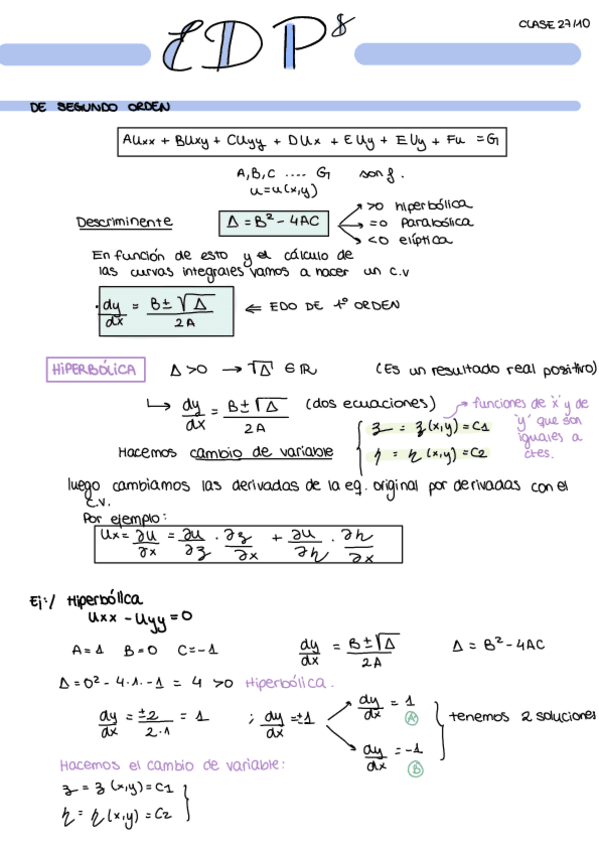 EDPs
CLASE 27/10
DE SEGUNDO ORDEN
Auxx + Buxy + Cuyy + Dux + Euy + EUy + Fu = G
A,B,C .... G son f.
u=u(x,y)
Descriminente Δ = B² - 4AC
>0 hiperbólica
=0 Parabólica
<0 elíptica
En función de esto y el cálculo de
las curvas integrales vamos a hacer un c.v
· dy/dx = (B ± √Δ)/2A ⇐ EDO DE 1º ORDEN
HIPERBÓLICA Δ >0 → √Δ ∈ ℝ (Es un resultado real positivo)
↳ dy/dx = (B ± √Δ)/2A (dos ecuaciones)
ξ = ξ(x,y) = C1
η = η(x,y) = C2
→ funciones de 'x' y de
'y' que son
iguales a
ctes.
Hacemos cambio de variable
luego cambiamos las derivadas de la eq. original por derivadas con el
c.v.
Por ejemplo:
Ux = ∂u/∂x = ∂u/∂ξ · ∂ξ/∂x + ∂u/∂η · ∂η/∂x
Ej:/ Hiperbólica
Uxx - Uyy = 0
A=1 B=0 C=-1 dy/dx = (B ± √Δ)/2A Δ = B² - 4AC
Δ = 0² - 4·1·-1 = 4 >0 Hiperbólica.
dy/dx = ±2/2·1 = 1 ; dy/dx = ±1
dy/dx = 1 A
dy/dx = -1 B
tenemos 2 soluciones
Hacemos el cambio de variable:
ξ = ξ(x,y) = C1
η = η(x,y) = C2